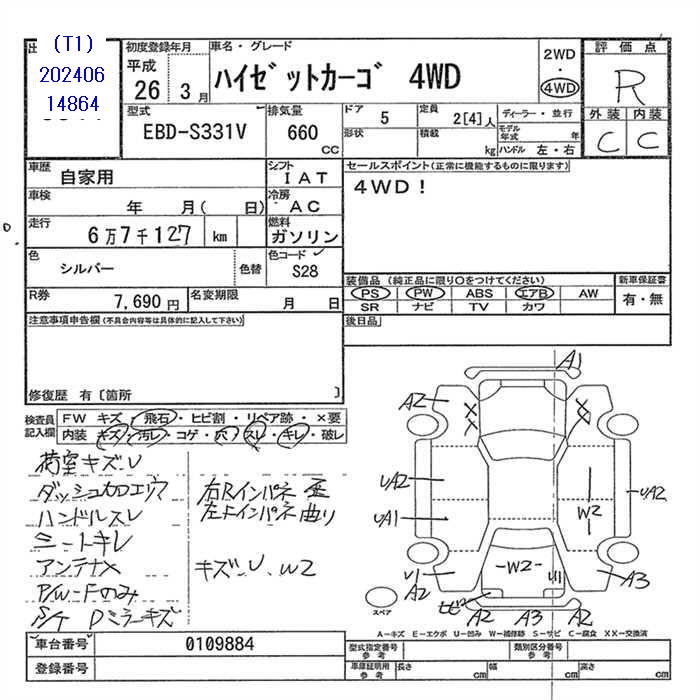 (T1)
202406
14864
初度登録年月
平成
26 3 月
車名・グレード
ハイゼットカーゴ 4WD
2WD
・
4WD
評価点
R
外装 内装
C C
型式
EBD-S331V
排気量
660
CC
ドア
5
形状
定員
2[4]人
積載
kg
ディーラー・並行
モデル年式 年
ハンドル 左・右
車歴
自家用
シフト
IAT
車検
年 月( 日)
冷房
AC
走行
6万7千127 km
燃料
ガソリン
色
シルバー
色替
色コード
S28
R券
7,690 円
名変期限
月 日
セールスポイント(正常に機能するものに限ります)
4WD!
装備品(純正品に限り○をつけてください)
PS PW ABS エアB AW
SR ナビ TV カワ
新車保証書
有・無
後日品
注意事項申告欄(不具合内容等は具体的に記入して下さい)
修復歴 有〔箇所 〕
検査員
記入欄
FW キズ・飛石・ヒビ割・リペア跡・×要
内装 キズ・汚レ・コゲ・穴・スレ・キレ・破レ
荷室キズ.U
ダッシュカロエリア
ハンドルスレ
シートキレ
アンテナ×
P/W-Fのみ
S/T Dミラーキズ
右Rインパネ歪
左Fインパネ曲り
キズ.U W2
A1
A2
UA2
UA1
UA2
W2
U1
A2
W2
U1
A3
ヒビ
A2 A3 A2
スペア
A-キズ E-エクボ U-凹み W-補修跡 S-サビ C-腐食 XX-交換済
車台番号
0109884
登録番号
型式指定番号
参考
類別区分番号
参考
車庫証明用
参考
長さ cm
幅 cm
高さ cm